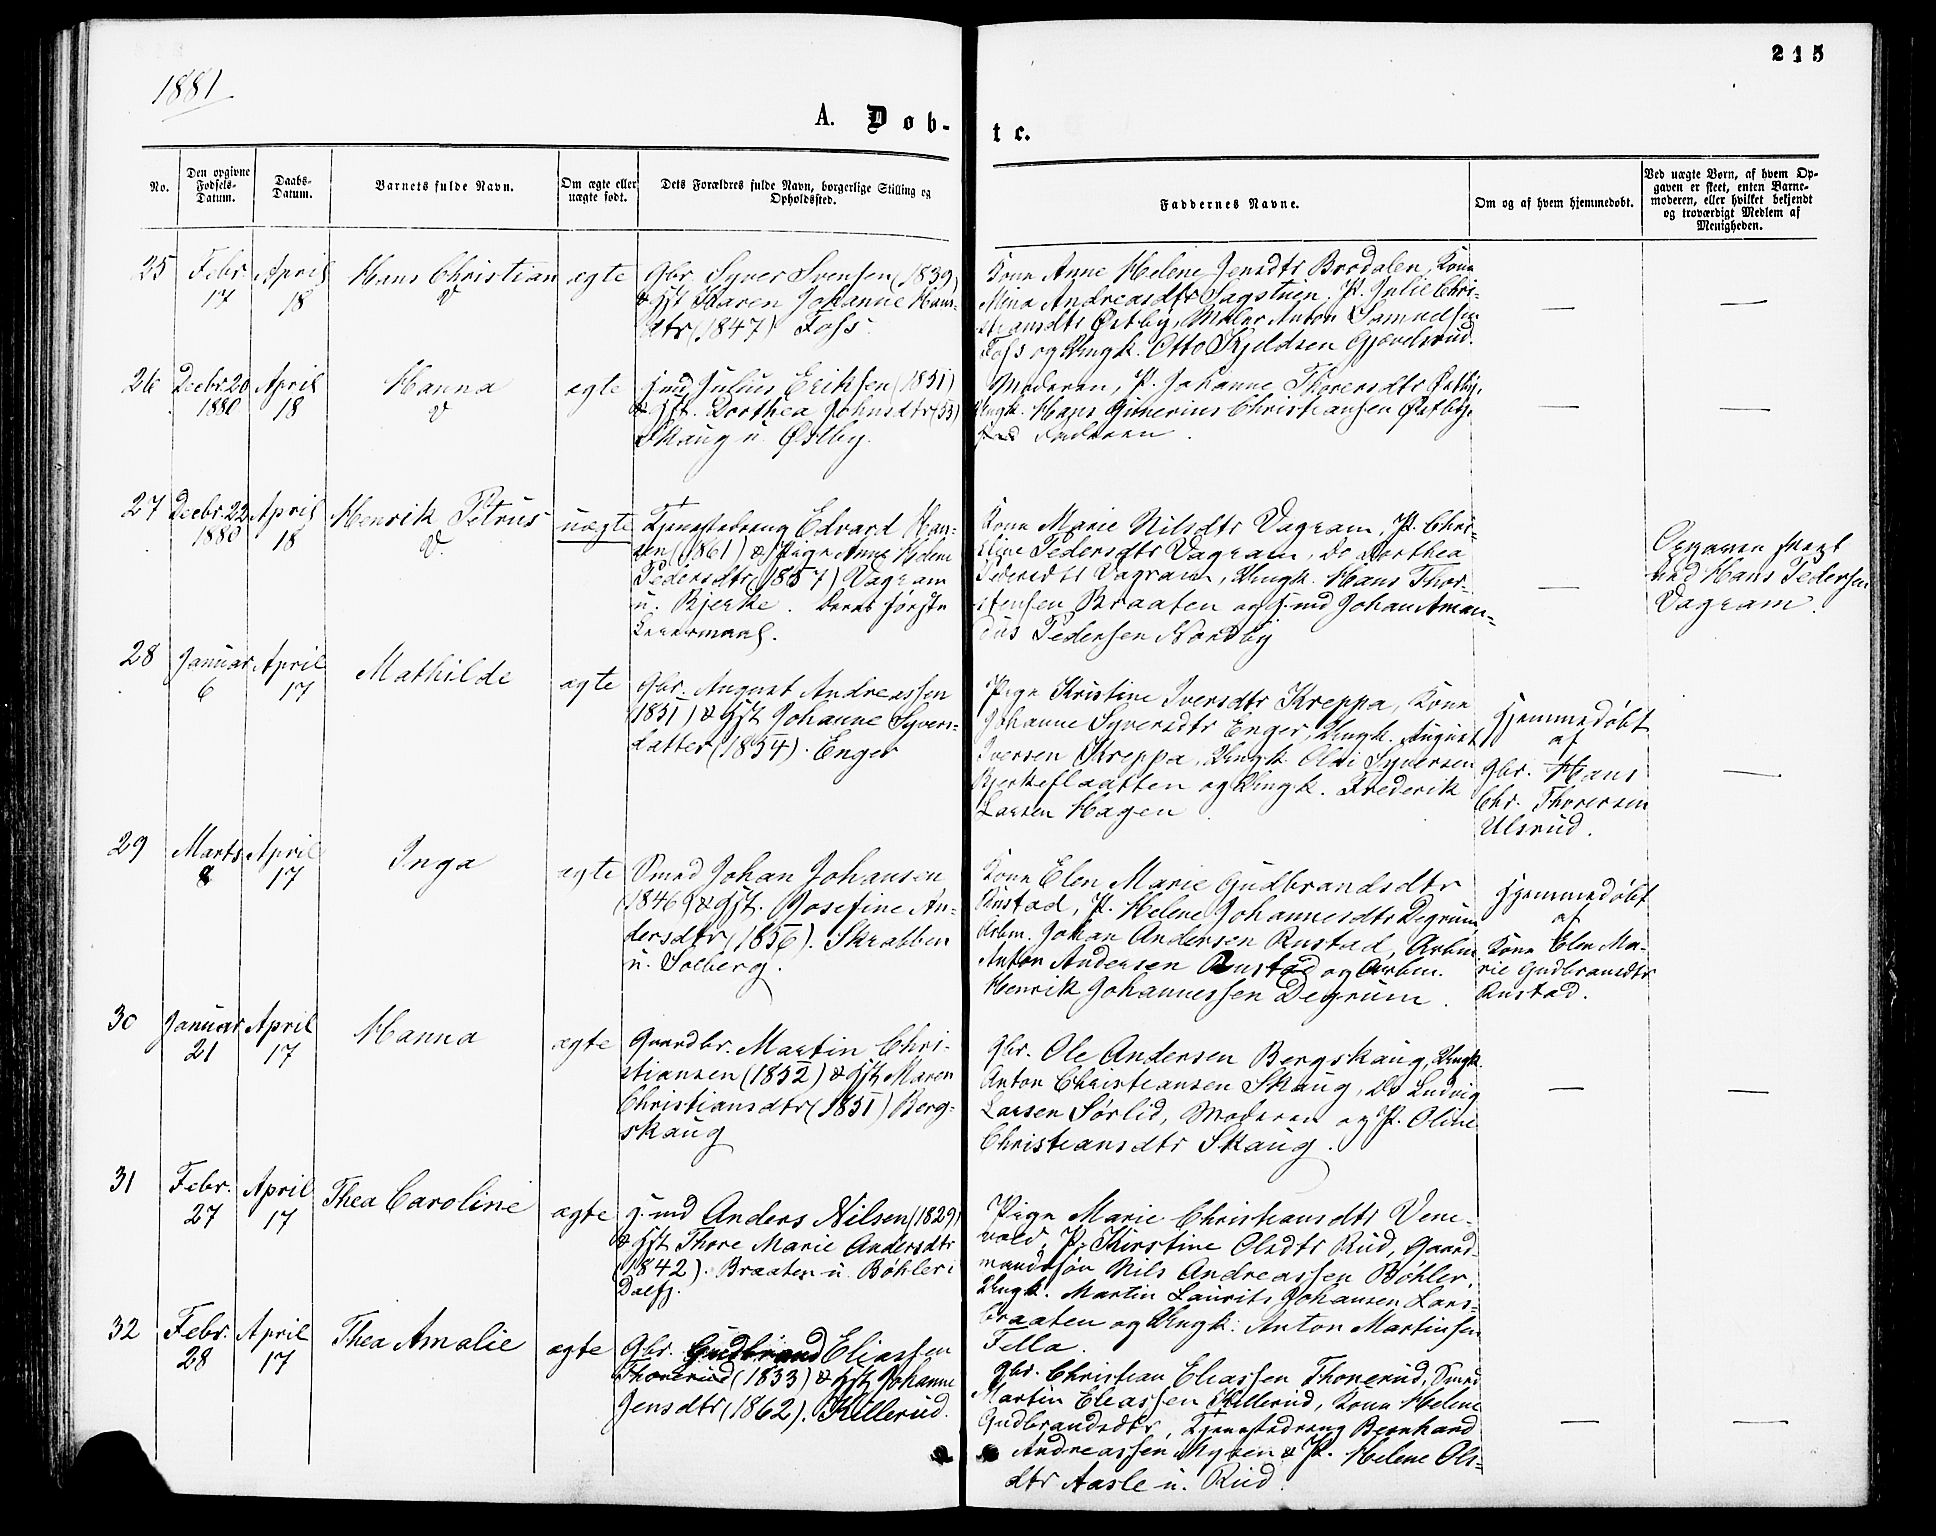 1881
215
A. Døb-
te.
No.
Den opgivne Fødsels-Datum.
Daabs-Datum.
Barnets fulde Navn.
Om ægte eller uægte født.
Dets Forældres fulde Navn, borgerlige Stilling og Opholdssted.
Faddernes Navne.
Om og af hvem hjemmedøbt.
Ved uægte Børn, af hvem Opgaven er skeet, enten Barnemoderen, eller hvilket bekjendt og troværdigt Medlem af Menigheden.
25
Febr. 17
April 18
Hans Christian
V
ægte
Gbr. Syver Svensen (1839)
& Hst Karen Johanne Hans-
dtr (1847) Foss
Kone Anne Helene Jensdtr Brodalen, Kone
Mina Andreasdtr Sagstuen, P. Julie Chri-
stiansdtr Østby, Maler Anton Samuelsen
Foss og Ungk. Otto Kjeldsen Gjævelsrud.
—
—
26
Decbr. 20 1880
April 18
Hanna
V
ægte
Jmd Julius Eriksen (1851)
& Hst. Dorthea Johnsdtr (53)
Skaug u. Østby.
Moderen, P. Johanne Thoresdtr Østby,
Ungk. Hans Gunerius Christiansen Østby,
Faderen.
—
—
27
Decbr. 22 1880
April 18
Henrik Petrus
V.
uægte
Tjenestedreng Edvard Han-
sen (1861) & Pige Anne Helene
Pedersdtr (1857) Vagram
u. Bjerke. Deres første
Leiermaal.
Kone Marie Nilsdtr Vagram, P. Chri-
stine Pedersdtr Vagram, Do Dorthea
Pedersdtr Vagram, Ungk. Hans Thor-
stensen Braaten og J. md Johan Aman-
dus Pedersen Nordby
—
Opgaven skeet
ved Hans Pedersen
Vagram.
28
Januar 6
April 17
Mathilde
ægte
Gbr. August Andreassen
(1851) & Hst Johanne Syvers-
datter (1854). Enger
Pige Kristine Iversdtr Kreppa, Kone
Johanne Syversdtr Enger, Ungk. August
Iversen Kreppa, Ungk. Syversen
Bjerkeflaatten og Ungk. Frederik
Larsen Hagen.
Hjemmedøbt
af
Gbr. Hans
Chr. Thoresen
Ulsrud.
—
29
Marts 8
April 17
Inga
ægte
Smed Johan Johansen
(1846) & Hst. Josefine An-
dersdtr (1856). Skrabben
u. Solberg.
Kone Elen Marie Gudbrandsdtr
Rustad, P. Helene Johannesdtr Degrum,
Arbm. Johan Andersen Rustad, Arbm
Anton Andersen Rustad og Arbm.
Henrik Johannessen Degrum.
Hjemmedøbt
af
Kone Elen Ma-
rie Gudbrandsdtr
Rustad.
30
Januar 21
April 17
Hanna
ægte
Gaardbr. Martin Chri-
stiansen (1852) & Hst Maren
Christiansdtr (1851) Berg-
skaug
Gbr. Ole Andersen Bergskaug, Ungk.
Anton Christiansen Skaug, Do Ludvig
Larsen Sørlid, Moderen og P. Oline
Christiansdtr Skaug.
—
—
31
Febr. 27
April 17
Thea Caroline
ægte
J. md Anders Nilsen (1829)
& Hst Thore Marie Andersdtr
(1842). Braaten u. Bøhler i
Dalfj.
Pige Marie Christiansdtr Vene-
vold, P. Kirstine Olsdtr Rud, Gaard-
mandssøn Nils Andreassen Bøhler,
Ungk. Martin Laurits Johansen Lars-
braaten og Ungk. Anton Martinsen
Fella.
32
Febr. 28
April 17
Thea Amalie
ægte
Gbr. Gudbrand Eliassen
Thonerud (1833) & Hst Johanne
Jensdtr (1862). Killerud.
Gbr. Christian Eliassen Thonerud, Smed
Martin Eliassen Killerud, Kone Helene
Gudbrandsdtr, Tjenestedreng Bernhard
Andreassen Myren & P. Helene Ols-
dtr Aasle u. Rud.
—
—